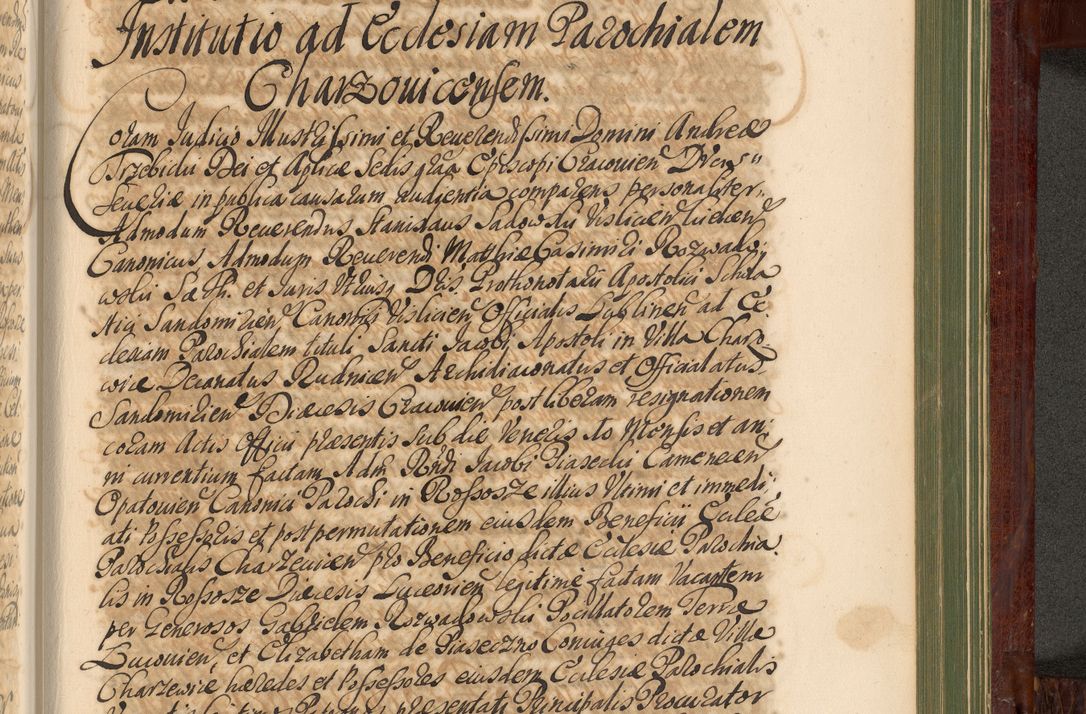 Institutio ad Ecclesiam Parochialem
Charzouicensem.
Coram Judicio Illustrissimi et Reuerendissimi Domini Andreæ
Trzebicki Dei et Aplicæ Sedis graa Episcopi Cracouien Ducis
Seueriæ in publica causarum audientia comparens personaliter
Admodum Reuerendus Stanislaus Sadowski Vislicien
Canonicus Admodum Reuerendi Matthiæ Casimiri Rozwado,
wski S. Th. et Juris Vtriusq Dris Prothonotarii Apostolici Schola
stici Sandomirien Canonici Vislicien Officialis Lublinen ad Ec
clesiam Parochialem tituli Sancti Jacobi Apostoli in Villa Charzo,
wice Decanatus Rudnicen Archidiaconatus et Officialatus
Sandomirien Diæcesis Cracouien post liberam resignationem
coram Actis Officii præsentis sub die Veneris Mensis et an,
ni currentium factam Adm Rndi Jacobi Piasecki Camenecen
Opatouien Canonici Parochi in Rossosze illius Vltimi et immedi,
ati Possessoris et post permutationem eiusdem Beneficii Eccleæ
Parochialis Charzeuicen pro Beneficio dictæ Ecclesiæ Parochia,
lis in Rossosze Diæcesis Luceorien legitime factam Vacantem
per Generosos Gabrielem Rozwadowski Pocillatorem Terræ
Lucouien, et Elizabetham de Piaseczno Coniuges dictæ Villæ
Charzewice hæredes et Possessores eiusdem Ecclesiæ Parochialis
præsentati Principalis Procurator